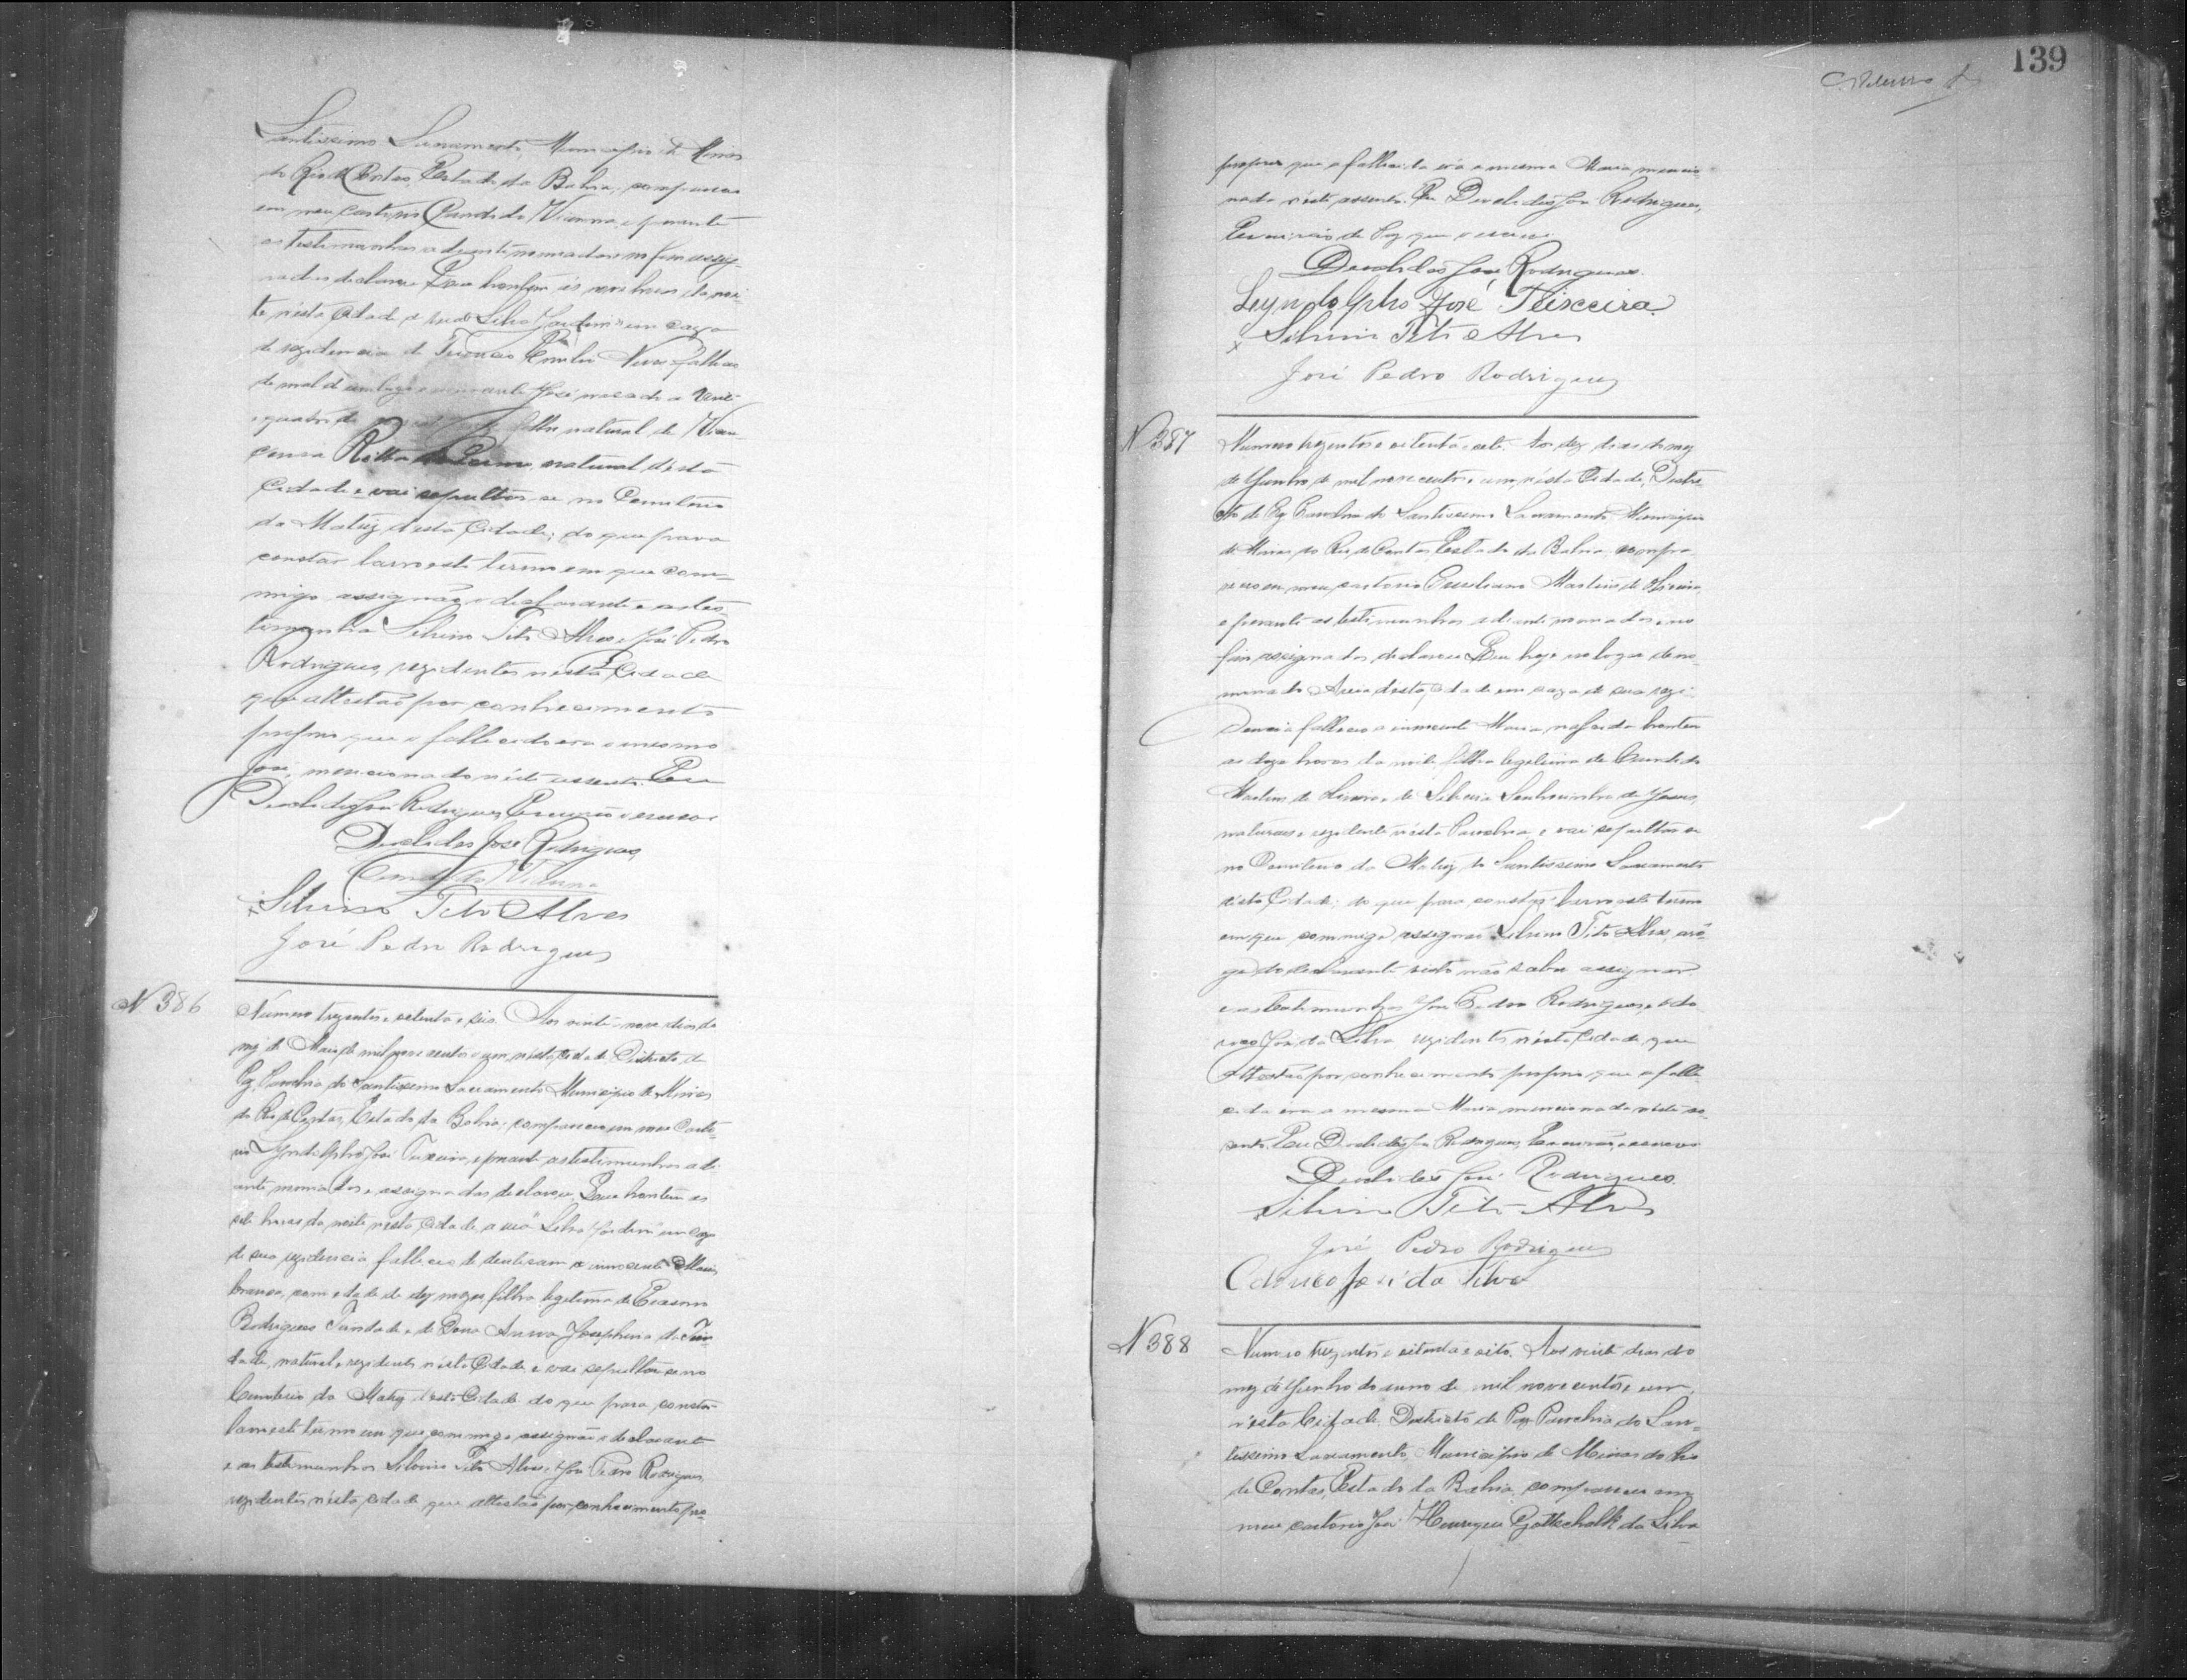 Santissimo Sacramento, Municipio de Minas
do Rio de Contas, Estado da Bahia, compareceu
em meu cartorio Candido Vianna, e perante
as testimunhas adiante nomeadas no fim assig-
nadas declarou Que hontem ás horas da noi-
te n'esta Cidade a rua Silva Jardim em caza
de rezidencia de Emilio Neves falleceu
de mal de innocente José nascido a vinte
e quatro de filho natural de
Ritta natural d'esta
Cidade e vai sepultar-se no Cemiterio
da Matriz d'esta Cidade; do que para
constar lavro este termo em que com-
migo assignão o declarante e as tes-
timunhas Silvino Tito Alves e José Pedro
Rodrigues, rezidentes n'esta Cidade
que attestão por conhecimento
proprio que o fallecido era o mesmo
José, mencionado n'este assento. Eu
Deoclides José Rodrigues, Escrivão o escrevi
Deoclides José Rodrigues
Candido Vianna
Silvino Tito Alves
José Pedro Rodrigues
N 386
Numero trezentos e oitenta e seis. Aos vinte e nove dias do
mez de Maio de mil nove centos e um, n'esta Cidade, Districto de
Paz, Parochia do Santissimo Sacramento Municipio de Minas
do Rio de Contas, Estado da Bahia; compareceu em meu Carto-
rio Lyndolpho José Teixeira, e perante as testimunhas adi-
ante nomeadas e assignadas declarou: Que hontem as
sete horas da noite n'esta Cidade, a rua "Silva Jardim" em caza
de sua rezidencia falleceu de denticam a innocente Maria,
branca, com edade de dez mezes filha legitima de
Rodrigues Trindade e de Dona Anna Josephina da Trin-
dade, natural e rezidentes n'esta Cidade e vai sepultar-se no
Cemiterio da Matriz d'esta Cidade do que para constar
lavro este termo em que commigo assignão o declarante
e as testimunhas Silvino Tito Alves e José Pedro Rodrigues,
rezidentes n'esta Cidade que attestão por conhecimento pro-
139
proprio que a fallecida era a mesma Maria mencio-
nada n'este assento. Eu Deoclides José Rodrigues,
Escrivão de Paz que o escrevi
Deoclides José Rodrigues.
Lyndolpho José Teixeira
Silvino Tito Alves
José Pedro Rodrigues
N 387
Numero trezentos e oitenta e sete. Aos dez dias do mez
de Junho de mil nove centos e um, n'esta Cidade, Distri-
cto de Paz Parochia do Santissimo Sacramento Municipio
de Minas do Rio de Contas, Estado da Bahia compa-
receu em meu cartorio Martins de
e perante as testimunhas adiante nomeadas e no
fim assignadas declarou Que hoje no lugar deno-
minado Areia d'esta Cidade em caza de sua rezi-
dencia falleceu a innocente Maria, nascida hontem
as doze horas da noite, filha legitima de Candido
Martins de e de Silveria Senhorinha de Jesus,
naturaes e rezidentes n'esta Parochia, e vai sepultar-se
no Cemiterio da Matriz do Santissimo Sacramento
d'esta Cidade; do que para constar lavro este termo
em que commigo assignão Silvino Tito Alves, a ro-
go do declarante visto não saber assignar
e as testimunhas José Pedro Rodrigues e
José da Silva rezidentes n'esta Cidade, que
attestão por conhecimento proprio que a falle-
cida era a mesma Maria mencionada n'este as-
sento. Eu Deoclides José Rodrigues, Escrivão, o escrevi
Deoclides José Rodrigues.
Silvino Tito Alves
José Pedro Rodrigues
José da Silva
N 388
Numero trezentos e oitenta e oito. Aos vinte dias do
mez de Junho do anno de mil nove centos e um,
n'esta Cidade. Districto de Paz Parochia do San-
tissimo Sacramento, Municipio de Minas do Rio
de Contas, Estado da Bahia, compareceu em
meu cartorio José Henrique Gottschalk da Silva